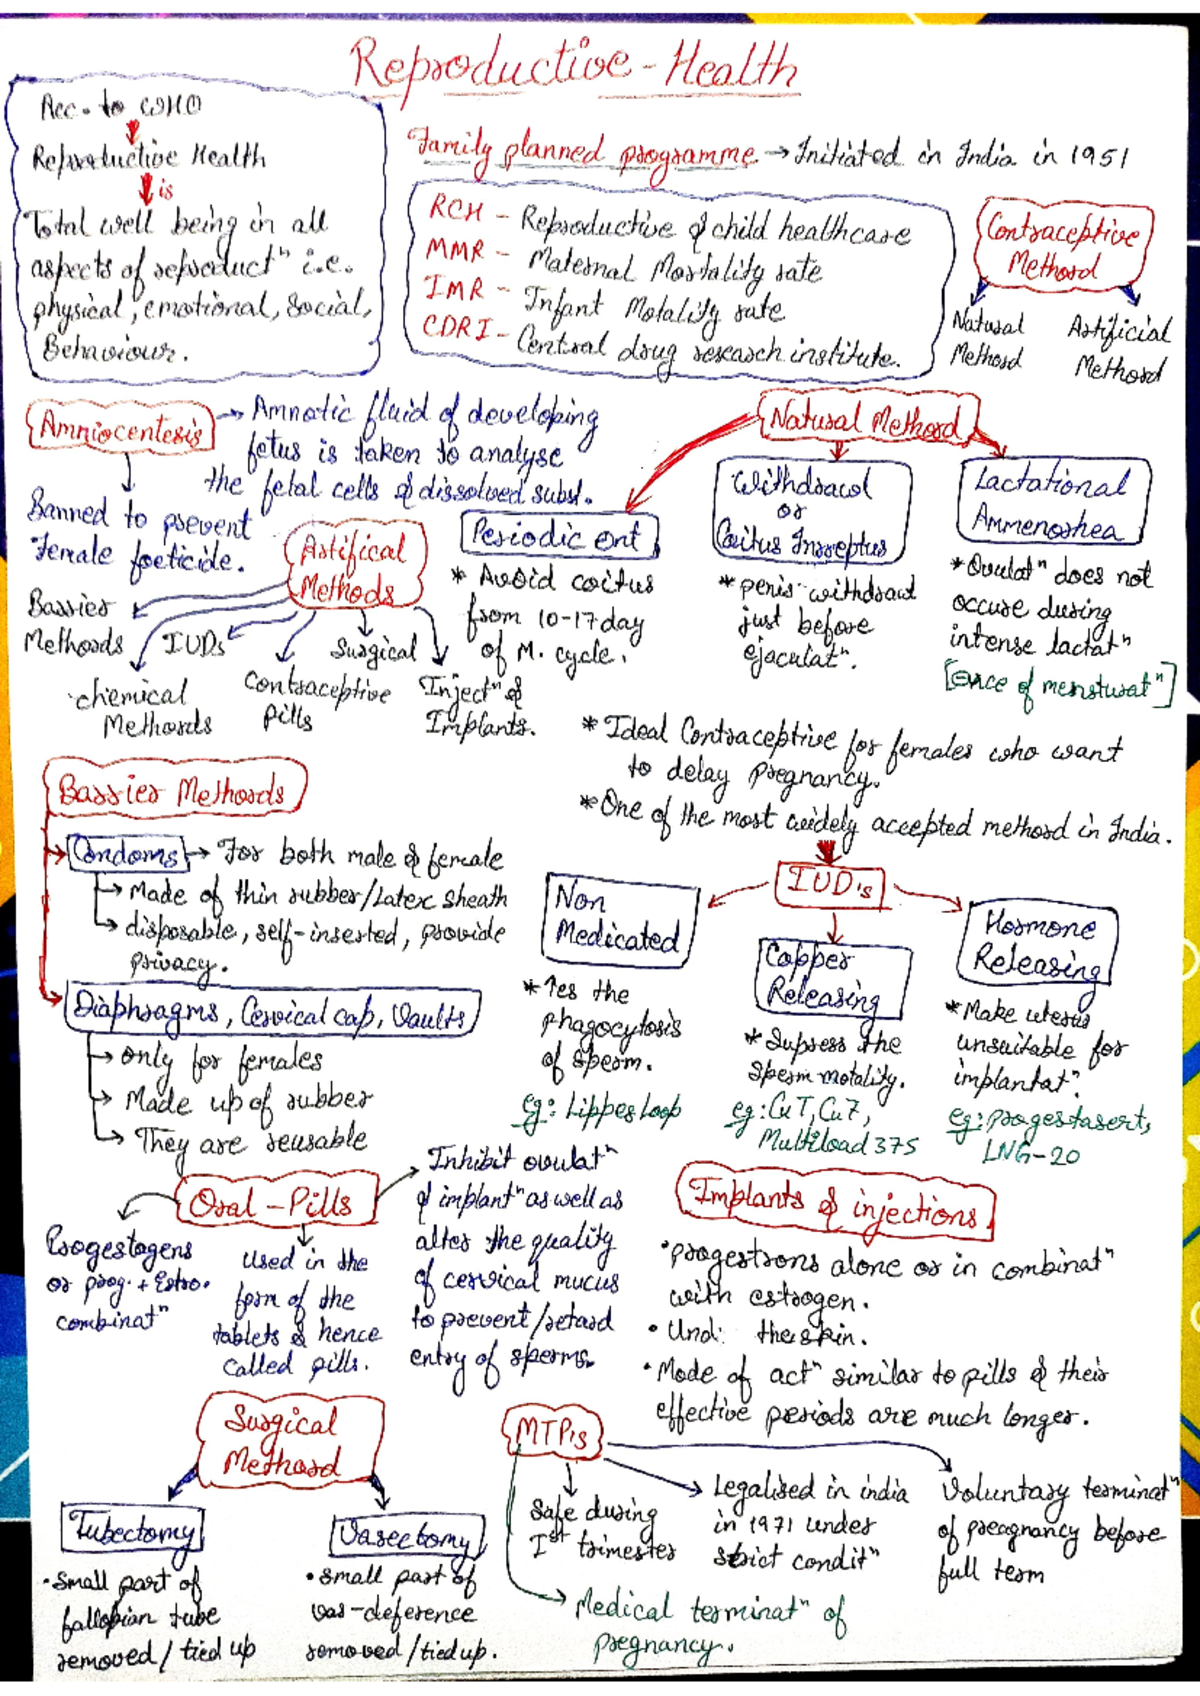 Reproductive-Health
Acc. to WHO
Reproductive Health
is
Total well being in all
aspects of reproductⁿ i.e.
physical, emotional, Social,
Behaviour.
Family planned programme → Initiated in India in 1951
RCH - Reproductive & child healthcare
MMR - Maternal Mortality rate
IMR - Infant Motality rate
CDRI - Central drug research institute.
Contraceptive
Methord
Natural
Methord
Artificial
Methord
Amniocentesis → Amnotic fluid of developing
fetus is taken to analyse
the fetal cells & dissolved subst.
Banned to prevent
female foeticide.
Natural Methord
Periodic ent
* Avoid coitus
from 10-17 day
of M. cycle.
Withdrawl
or
Coitus Inrreptus
* penis withdrawl
just before
ejaculatⁿ.
Lactational
Ammenorhea
* Ovulatⁿ does not
occure during
intense lactatⁿ
[ence of menstruatⁿ]
Artifical
Methods
Barrier
Methords
IUDs
Surgical
chemical
Methords
Contraceptive
pills
Injectⁿ &
Implants.
* Ideal Contraceptive for females who want
to delay pregnancy.
* One of the most widely accepted methord in India.
Barrier Methords
Condoms → For both male & female
→ Made of thin rubber/Latex sheath
→ disposable, self-inserted, provide
privacy.
Diaphragms, Cervical cap, Vaults
→ only for females
→ Made up of rubber
→ They are reusable
IUD's
Non
Medicated
* ↑es the
phagocytosis
of sperm.
eg: Lippes loop
Copper
Releasing
* Supress the
sperm motality.
eg: CuT, Cu7,
Multiload 375
Hormone
Releasing
* Make uterus
unsuitable for
implantatⁿ.
eg: progestasert,
LNG-20
Oral-Pills
Progestogens
or prog. + Estro.
combinatⁿ
used in the
form of the
tablets & hence
called pills.
Inhibit ovulatⁿ
& implantⁿ as well as
alter the quality
of cervical mucus
to prevent/retard
entry of sperms.
Implants & injections
• progestrons alone or in combinatⁿ
with estrogen.
• Und: the skin.
• Mode of actⁿ similar to pills & their
effective periods are much longer.
Surgical
Methord
Tubectomy
• Small part of
fallopian tube
removed/tied up
Vasectomy
• small part of
vas-deference
removed/tied up.
MTP's
Safe during
Iˢᵗ trimester
Legalised in india
in 1971 under
strict conditⁿ
Voluntary terminatⁿ
of preagnancy before
full term
Medical terminatⁿ of
pregnancy.